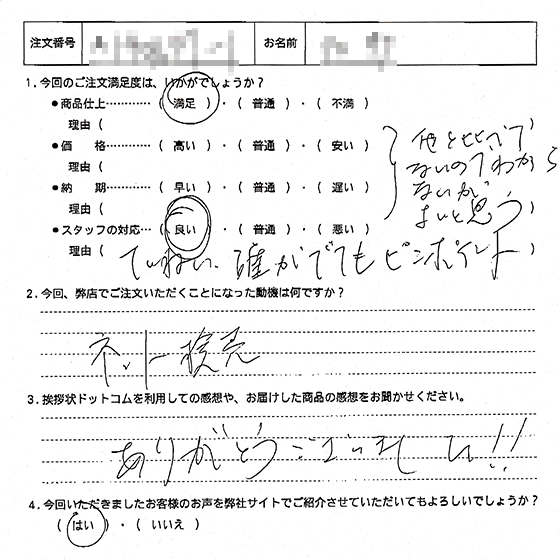 注文番号
お名前
1. 今回のご注文満足度は、いかがでしょうか?
●商品仕上………… ( 満足 ) ・ ( 普通 ) ・ ( 不満 )
理由 ( )
●価　格………… ( 高い ) ・ ( 普通 ) ・ ( 安い )
理由 ( )
●納　期………… ( 早い ) ・ ( 普通 ) ・ ( 遅い )
理由 ( )
他と比べて
ないのでわから
ないが
よいと思う
●スタッフの対応… ( 良い ) ・ ( 普通 ) ・ ( 悪い )
理由 ( ていねい、確かでてもピンポイント )
2. 今回、弊店でご注文いただくことになった動機は何ですか?
ネット検売
3. 挨拶状ドットコムを利用しての感想や、お届けした商品の感想をお聞かせください。
ありがとうございました!!
4. 今回いただきましたお客様のお声を弊社サイトでご紹介させていただいてもよろしいでしょうか?
( はい ) ・ ( いいえ )